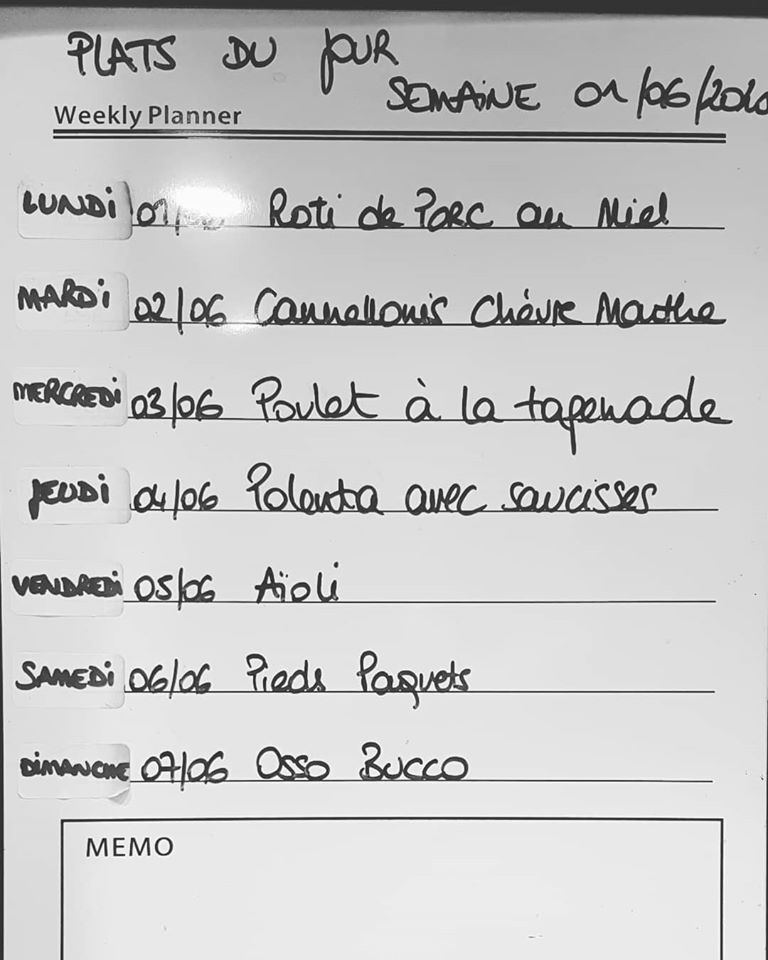 PLATS DU JOUR
SEMAINE 01/06/2020
Weekly Planner
LUNDI 01/ Roti de Porc au Miel
MARDI 02/06 Cannellonis Chèvre Menthe
MERCREDI 03/06 Poulet à la tapenade
JEUDI 04/06 Polenta avec saucisses
VENDREDI 05/06 Aïoli
SAMEDI 06/06 Pieds Paquets
DIMANCHE 07/06 Osso Bucco
MEMO